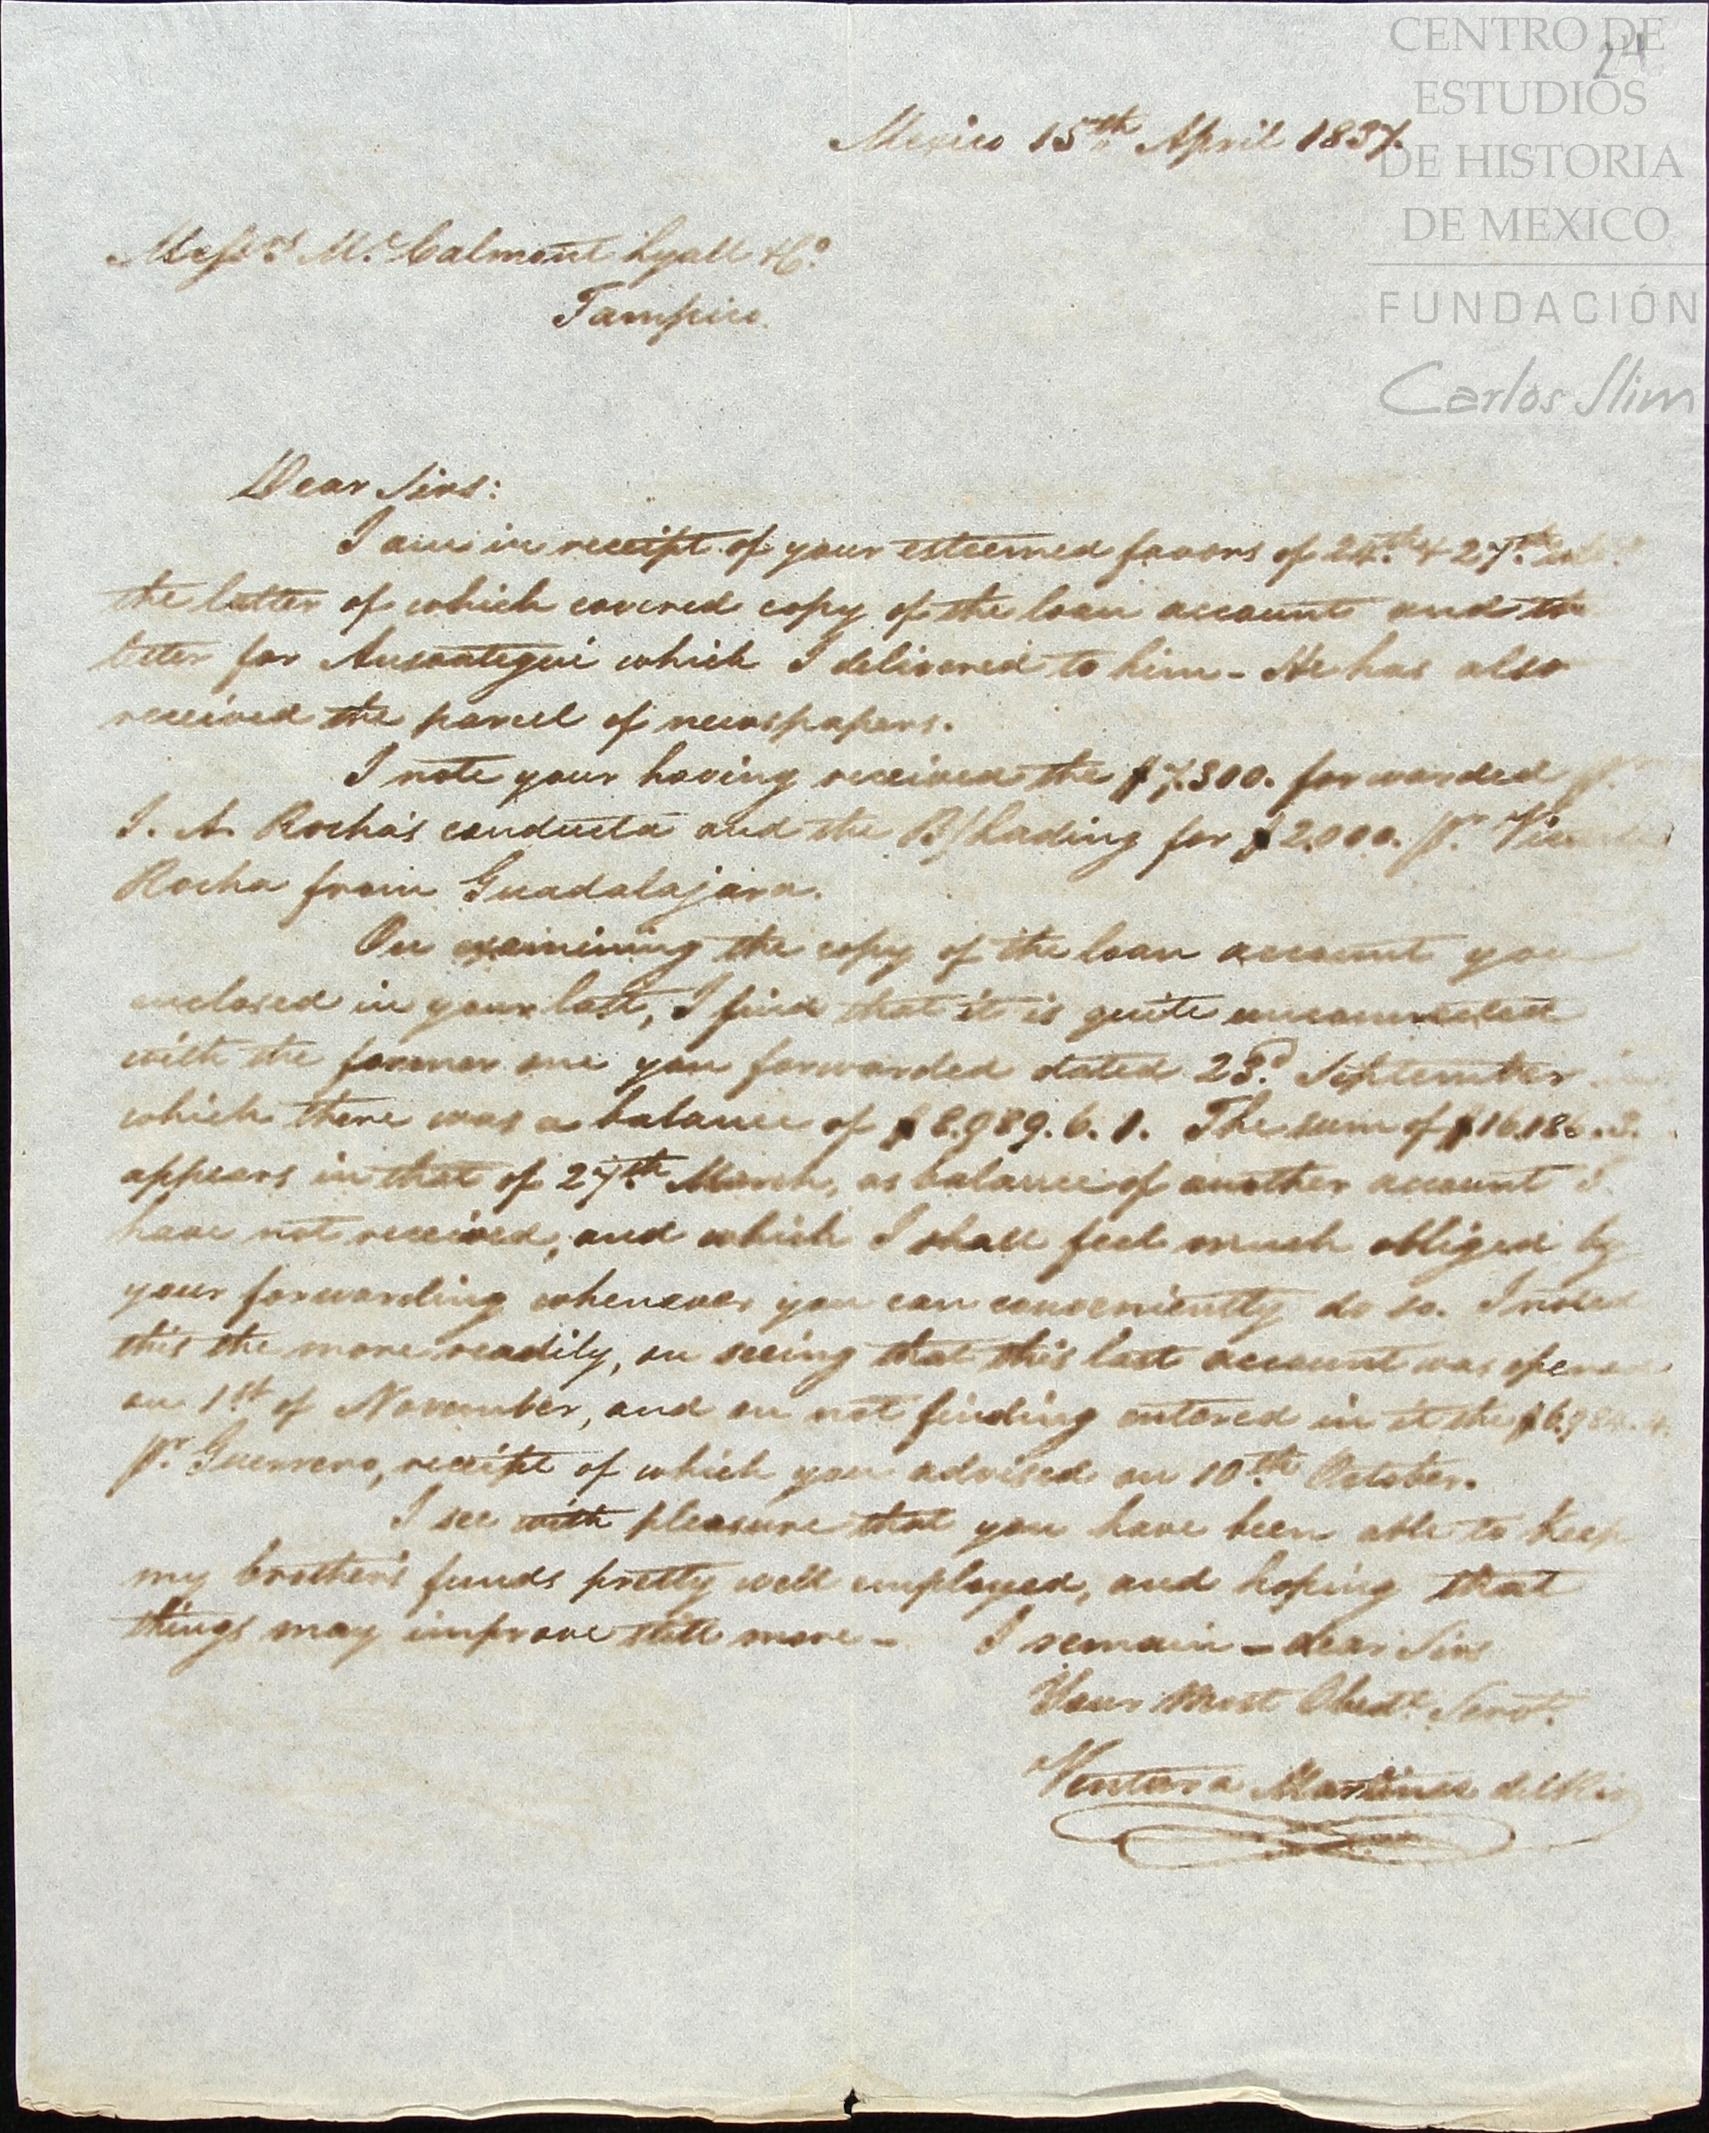 CENTRO DE
ESTUDIOS
DE HISTORIA
DE MEXICO
FUNDACIÓN
Carlos Slim
24
Mexico 15th April 1837.
Messrs Mc.Calmont Lyall & Co.
Tampico.
Dear Sirs:
I am in receipt of your esteemed favors of 24th. & 27th.
the latter of which covered copy of the loan account and the
letter for Ansoategui which I delivered to him - He has also
received the parcel of newspapers.
I note your having received the $7.300. forwarded pr.
J. A. Rocha's conducta and the B/Lading for $2.000. pr.
Rocha from Guadalajara.
On examining the copy of the loan account you
enclosed in your last, I find that it is quite unconnected
with the former one you forwarded dated 23d. September in
which there was a balance of $8.989.6.1. The sum of
appears in that of 27th March, as balance of another account I
have not received, and which I shall feel much obliged by
your forwarding whenever you can conveniently do so. I noted
this the more readily, on seeing that this last account was opened
on 1st of November, and on not finding entered in it the
pr. Guerrero, receipt of which you advised on 10th. October.
I see with pleasure that you have been able to keep
my brother's funds pretty well employed, and hoping that
things may improve still more - I remain - dear Sirs
Your Most Obedt. Servt.
Ventura Martinez del Rio